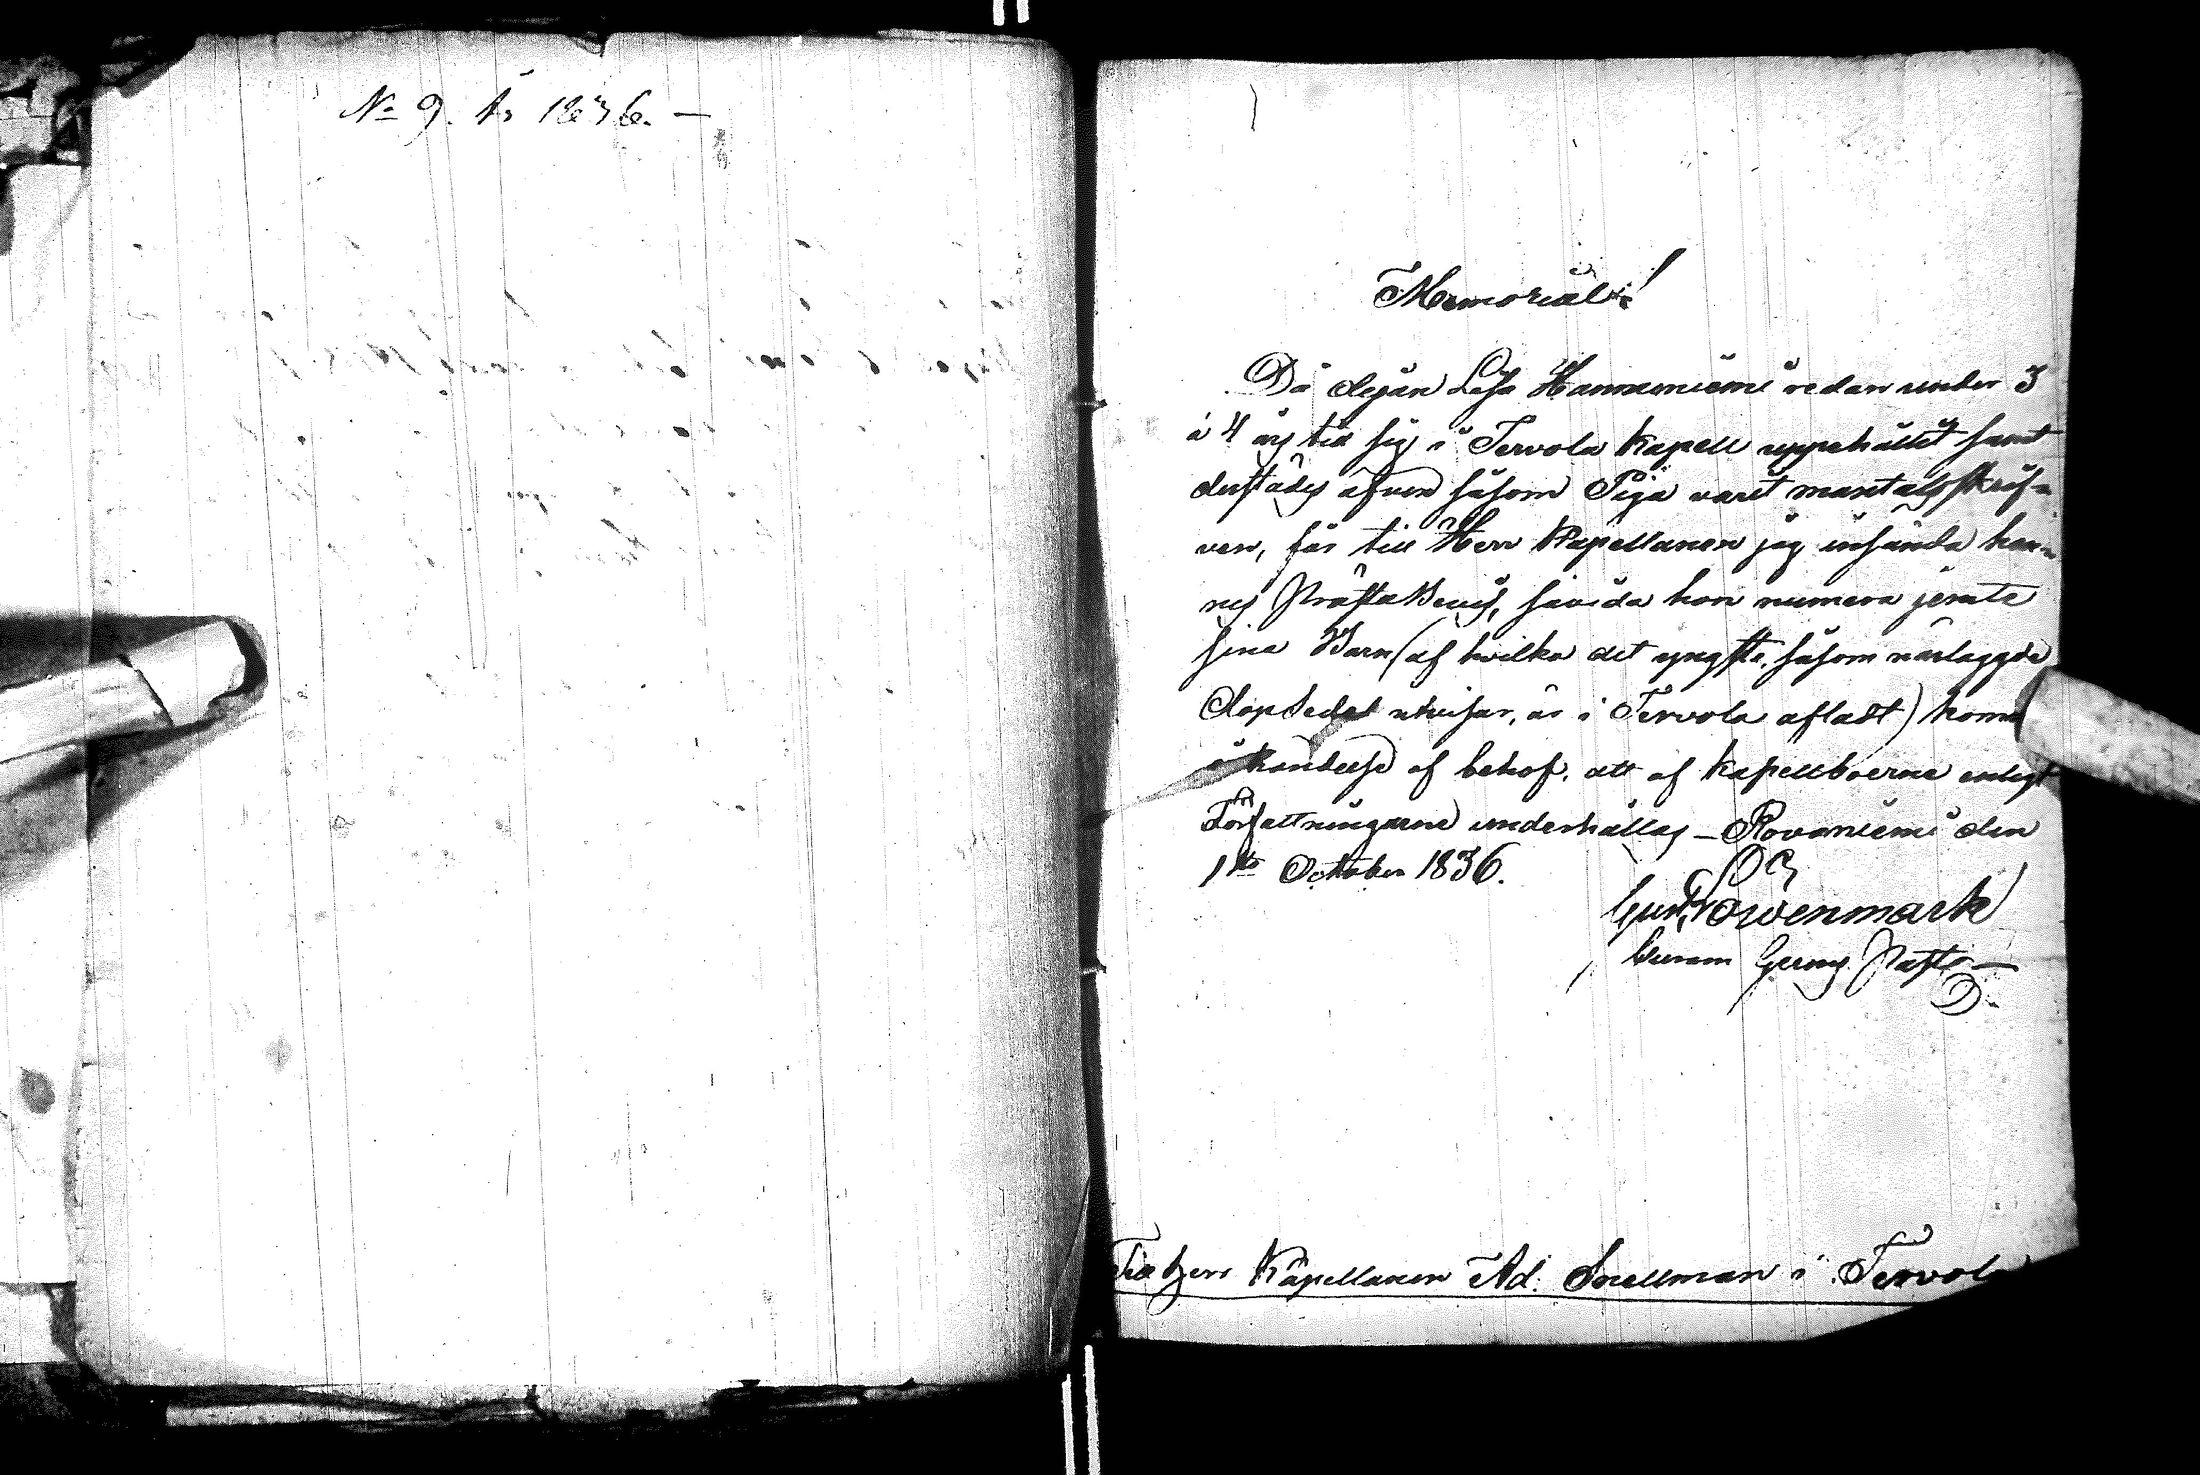 No 9. År 1836. —
Memorial!
Då Pigan Lisa Hannuniemi redan under 3
à 4 års tid sig i Tervola Kapell uppehållit samt
derstädes äfven såsom Piga varit mantalsskrif-
ven, får till Herr Kapellanen jag insända hen-
nes PrästaBevis, såvida hon numera jemte
sina Barn (af hvilka det yngsta, såsom närlaggde
DopSedel utvisar, är i Tervola afladt) kom
i händelse af behof, att af kapellboerne enligt
Författningarne underhållas — Rovaniemi den
1sta October 1836.
Gust. Lowenmark
Till Herr Kapellanen Ad. Snellman i Tervola